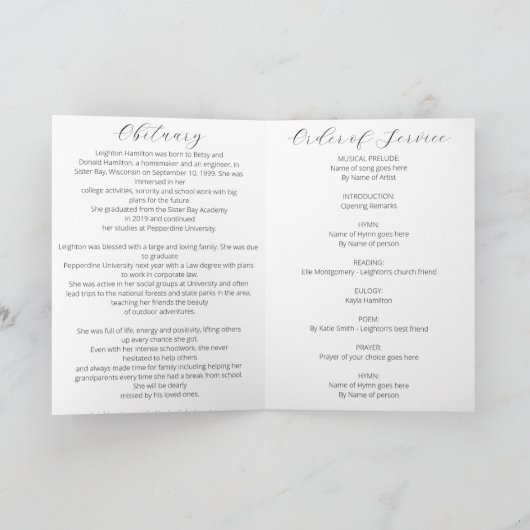 Obituary
Leighton Hamilton was born to Betsy and
Donald Hamilton, a homemaker and an engineer, in
Sister Bay, Wisconsin on September 10, 1999. She was
immersed in her
college activities, sorority and school work with big
plans for the future.
She graduated from the Sister Bay Academy
in 2019 and continued
her studies at Pepperdine University.
Leighton was blessed with a large and loving family. She was due
to graduate
Pepperdine University next year with a Law degree with plans
to work in corporate law.
She was active in her social groups at University and often
lead trips to the national forests and state parks in the area,
teaching her friends the beauty
of outdoor adventures.
She was full of life, energy and positivity, lifting others
up every chance she got.
Even with her intense schoolwork, she never
hesitated to help others
and always made time for family including helping her
grandparents every time she had a break from school.
She will be dearly
missed by his loved ones.
Order of Service
MUSICAL PRELUDE:
Name of song goes here
By Name of Artist
INTRODUCTION:
Opening Remarks
HYMN:
Name of Hymn goes here
By Name of person
READING:
Elle Montgomery - Leighton's church friend
EULOGY:
Kayla Hamilton
POEM:
By Katie Smith - Leighton's best friend
PRAYER:
Prayer of your choice goes here
HYMN:
Name of Hymn goes here
By Name of person